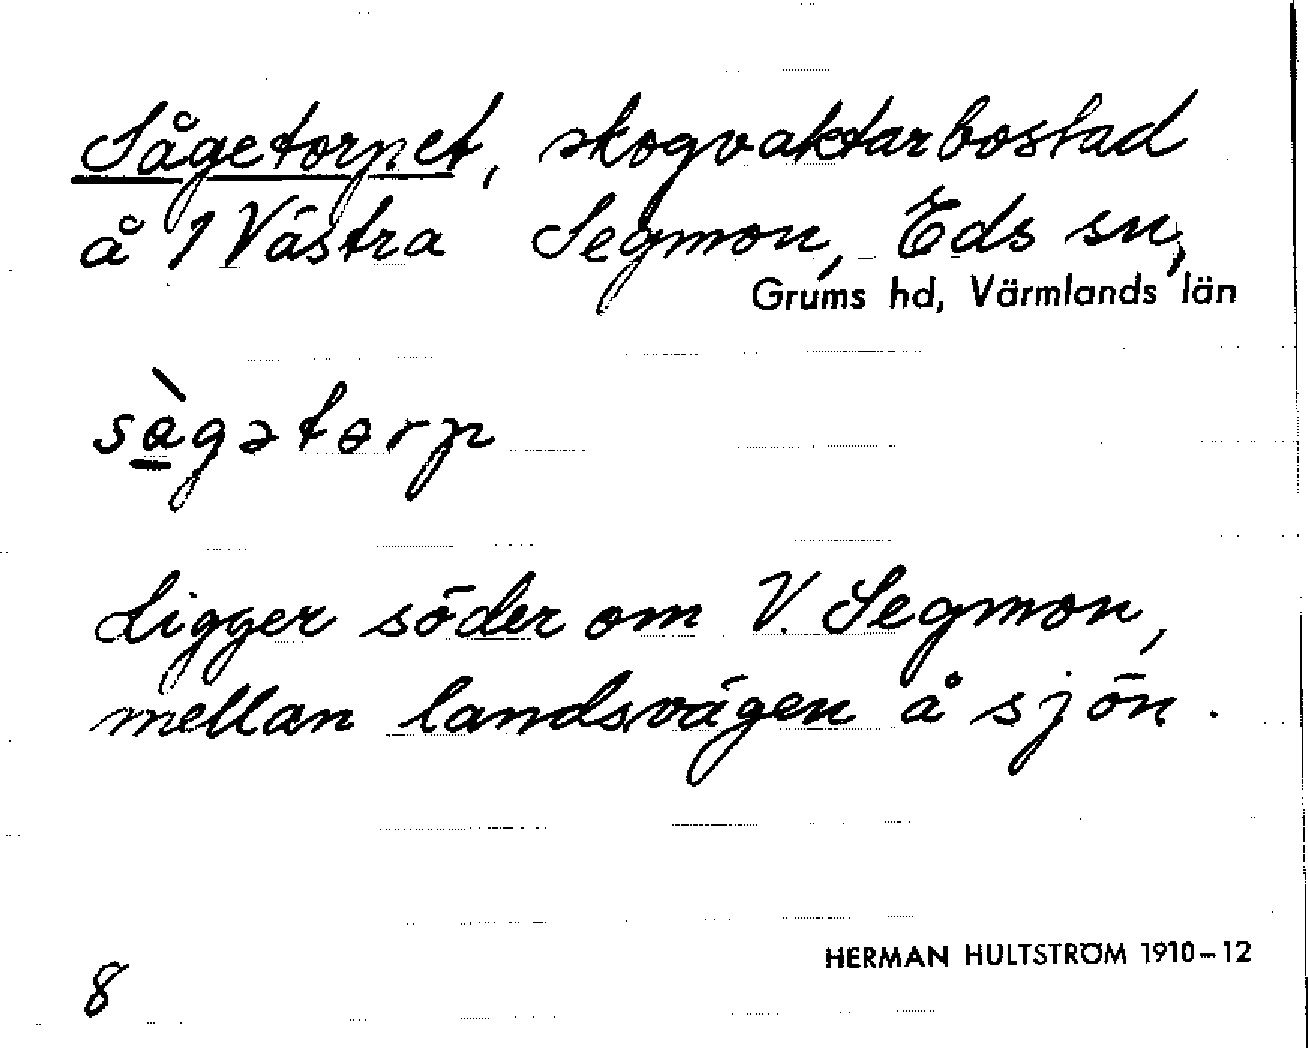 Sågetorpet, skogvaktarbostad
å 1 Västra Segmon, Eds sn,
Grums hd, Värmlands län
sàgətɵrp
Ligger söder om V. Segmon,
mellan landsvägen å sjön.
8
HERMAN HULTSTRÖM 1910–12